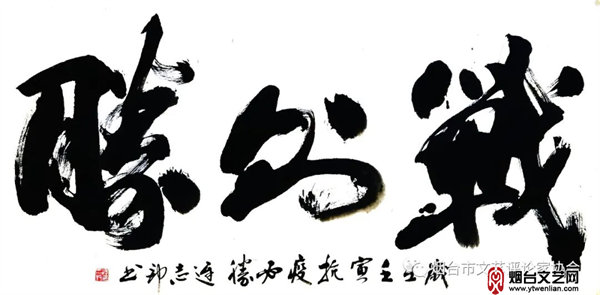 戰必勝
歲在壬寅抗疫必勝 志邦书
烟台市文艺评论家协会
烟台文艺网
www.ytwenlian.com